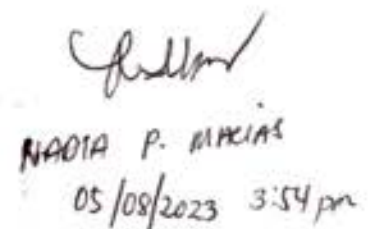 NADIA P. MACIAS
05/08/2023 3:54 pm